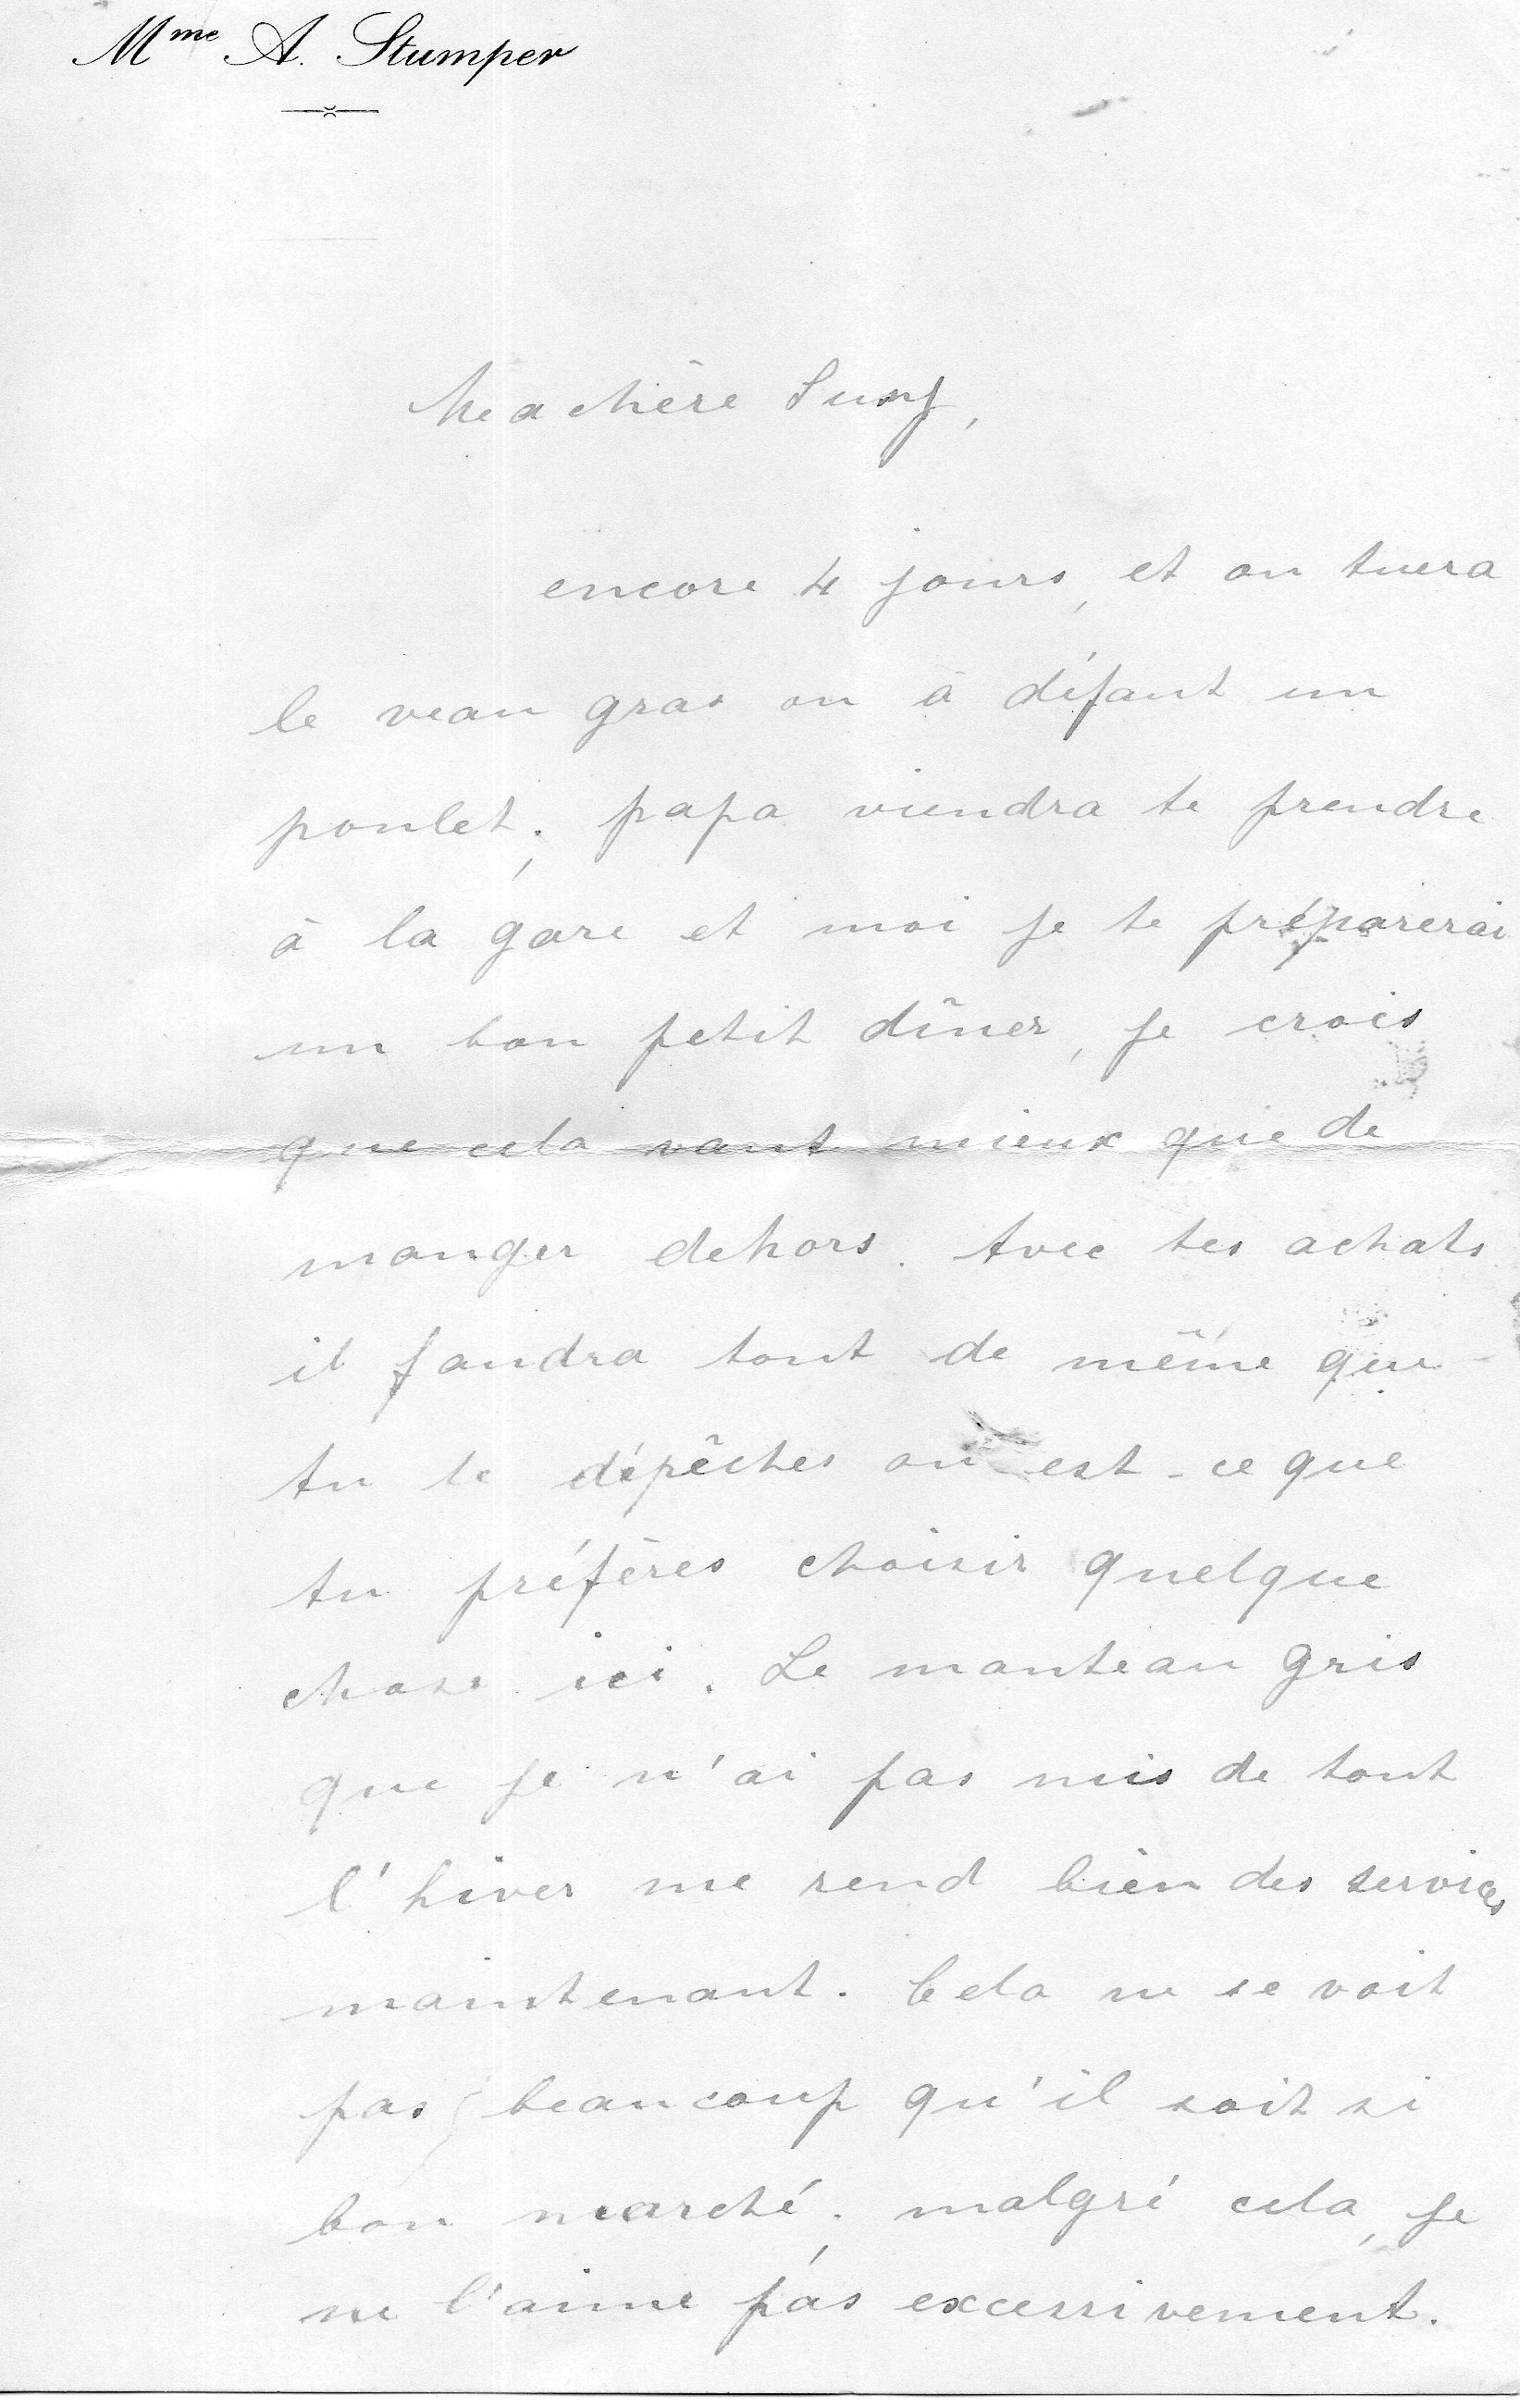 Mme A. Stumper
Ma chère Suzy,
encore 4 jours, et on tuera
le veau gras ou à défaut un
poulet; papa viendra te prendre
à la gare et moi je te préparerai
un bon petit dîner, je crois
que cela vaut mieux que de
manger dehors. Avec tes achats
il faudra tout de même que
tu te dépêches ou est-ce que
tu préfères choisir quelque
chose ici. Le manteau gris
que je n'ai pas mis de tout
l'hiver me rend bien des services
maintenant. Cela ne se voit
pas beaucoup qu'il soit si
bon marché; malgré cela, je
ne l'aime pas excessivement.